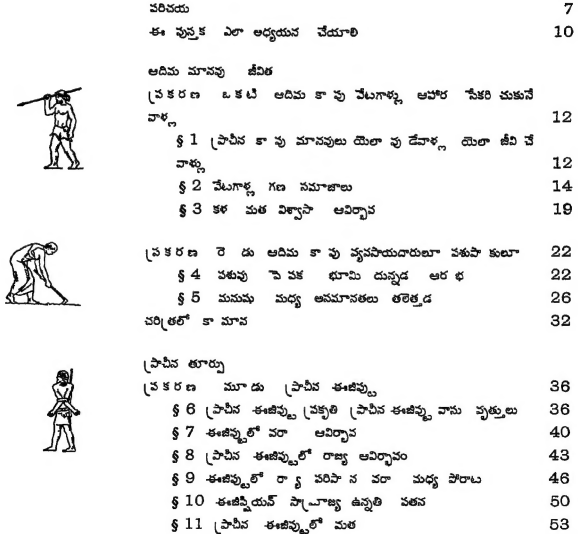 పరిచయ 7
ఈ పుస్తక ఎలా అధ్యయన చేయాలి 10
ఆదిమ మానవు జీవిత
ప్రకరణ ఒకటి ఆదిమ కా పు వేటగాళ్లు ఆహార సేకరి చుకునే
వాళ్ల 12
§ 1 ప్రాచీన కా పు మానవులు యెలా వు డేవాళ్ల యెలా జీవి చే
వాళ్లు 12
§ 2 వేటగాళ్ల గణ సమాజాలు 14
§ 3 కళ మత విశ్వాసా ఆవిర్భావ 19
ప్రకరణ రె డు ఆదిమ కా పు వ్యవసాయదారులూ పశుపా కులూ 22
§ 4 పశువు పె పక భూమి దున్నడ ఆర భ 22
§ 5 మనుషు మధ్య అసమానతలు తలెత్తడ 26
చరిత్రలో కా మాన 32
ప్రాచీన తూర్పు
ప్రకరణ మూడు ప్రాచీన ఈజిప్టు 36
§ 6 ప్రాచీన ఈజిప్టు ప్రకృతి ప్రాచీన ఈజిప్టు వాసు వృత్తులు 36
§ 7 ఈజిప్టులో వరా ఆవిర్భావ 40
§ 8 ప్రాచీన ఈజిప్టులో రాజ్య ఆవిర్భావం 43
§ 9 ఈజిప్టులో రా్య పరిపా న వరా మధ్య పోరాట 46
§ 10 ఈజిప్షియన్ సామ్రాజ్య ఉన్నతి పతన 50
§ 11 ప్రాచీన ఈజిప్టులో మత 53